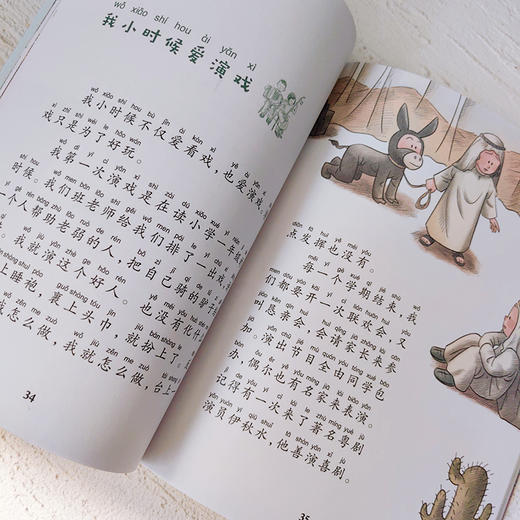 wǒ xiǎo shí hou ài yǎn xì
我小时候爱演戏
wǒ xiǎo shí hou bù jǐn ài kàn xì yě ài yǎn
我小时候不仅爱看戏，也爱演
xì zhǐ shì wèi le hǎo wán
戏只是为了好玩。
wǒ dì yī cì yǎn xì shì zài dú xiǎo xué yī nián
我第一次演戏是在读小学一年
shí hou wǒ men bān lǎo shī gěi wǒ men pái le yī chū xì
时候。我们班老师给我们排了一出戏
yí gè rén bāng zhù lǎo ruò de rén bǎ zì jǐ qí de lǘ
一个人帮助老弱的人，把自己骑的驴
wǒ jiù yǎn zhè ge hǎo rén yě méi yǒu huà
我就演这个好人。也没有化
shàng shuì páo guǒ shàng tóu jīn jiù bàn shàng le
上睡袍，裹上头巾，就扮上了。
zěn me zuò wǒ jiù zěn me zuò tái shàng
怎么做，我就怎么做，台上
34
diǎn fā huī yě méi yǒu
点发挥也没有。
měi yí gè xué qī jié shù wǒ
每一个学期结束，我
men dōu yào kāi yí cì lián huān huì yòu
们都要开一次联欢会，又
jiào kěn qīn huì huì qǐng jiā zhǎng lái cān
叫恳亲会，会请家长来参
jiā yǎn chū jié mù quán yóu tóng xué bāo
加。演出节目全由同学包
bàn ǒu ěr yě yǒu míng jiā lái biǎo yǎn
办，偶尔也有名家来表演。
jì de yǒu yí cì lái le zhù míng yuè jù
记得有一次来了著名粤剧
yǎn yuán yī qiū shuǐ tā shàn yǎn xǐ jù
演员伊秋水，他善演喜剧
35